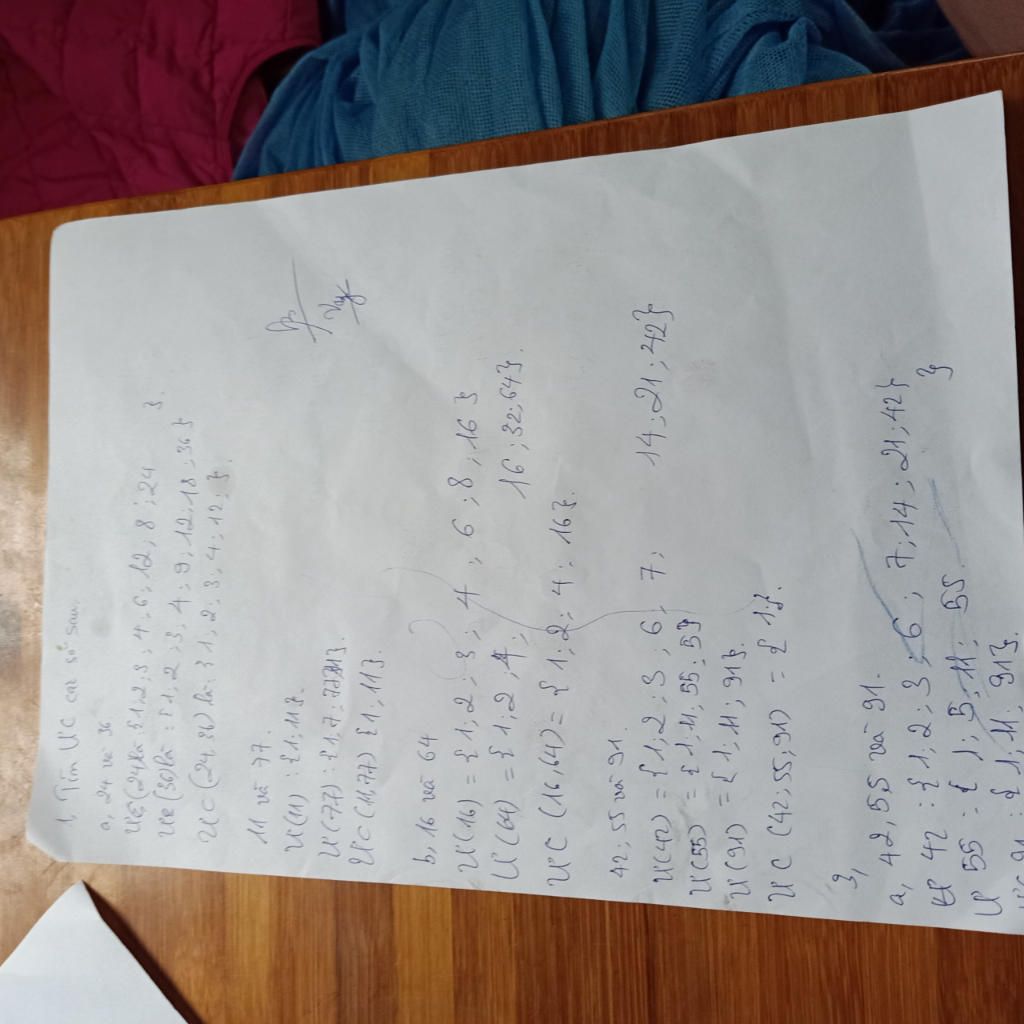 1, Tìm ƯC các số sau.
a, 24 và 36
ƯC(24) là {1,2;3;4;6;12;8;24 }.
Ư(36) là : {1,2;3;4;9;12;18;36}
ƯC(24,36) là: {1,2;3;4;12;}.
11 và 77.
Ư(11) : {1;11}.
Ư(77) : {1,7; 11}.
ƯC(11,77) {1;11}.
b, 16 và 64
Ư(16) = {1;2;3;4;6;8;16}
Ư(64) = {1;2;4; 16;32;64}.
ƯC (16,64) = {1;2;4;16}.
42; 55 và 91.
Ư(42) = {1,2;3;6; 7; 14;21;42}
Ư(55) = {1,11;55;5}
Ư(91) = {1,11;91}.
ƯC (42;55;91) = {1}.
3,
a, 42,55 và 91.
Ư 42 : {1;2;3;6; 7;14;21;42}
Ư 55 : { 1;5;11; 55. }
91 : {1;11;91}.